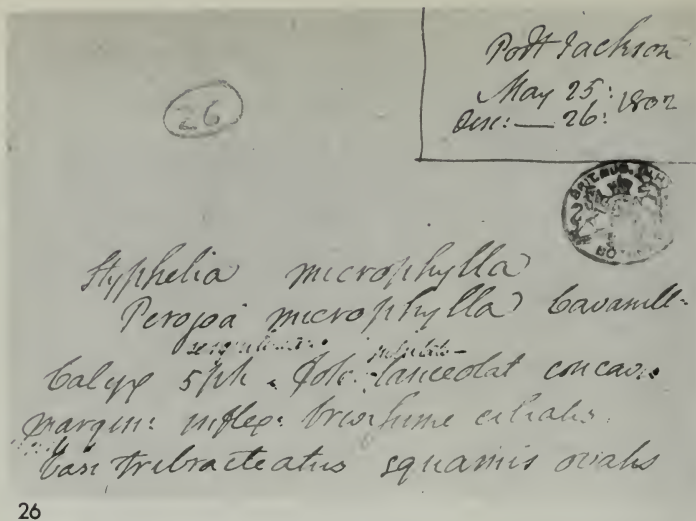 Port Jackson
May 25: 1802
Desc: — 26:
26
BRIT. MUS.
Styphelia microphylla
Perojoa microphylla Cavanill-
Calyx 5ph. fol: lanceolat concavis
margin: inflex: brevissime ciliatis
basi tribracteatus squamis ovatis
26